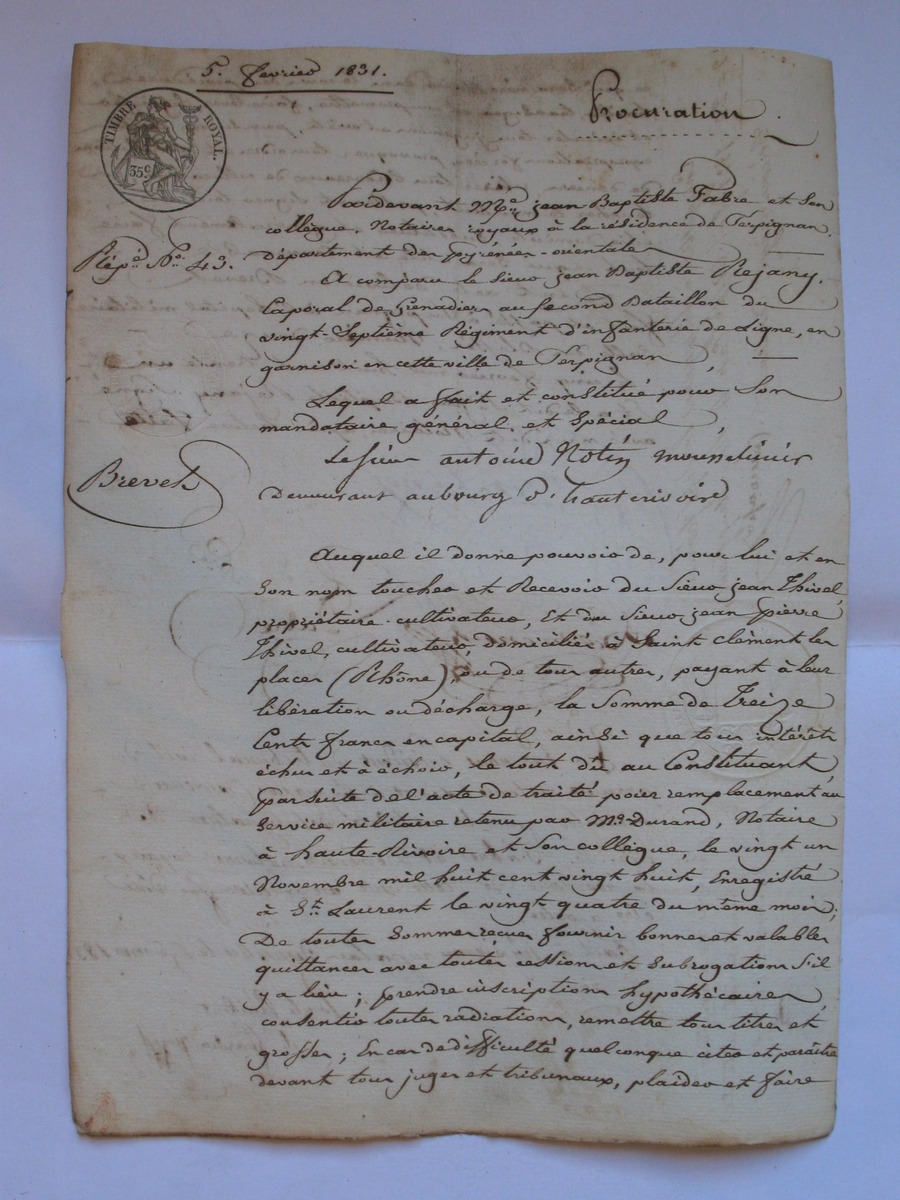 5. février 1831.
Procuration.
TIMBRE ROYAL.
35 c.
Pardevant Me. jean Baptiste Fabre et Son
collègue, Notaires royaux à la résidence de Perpignan,
Répre. No. 43.
département des pyrénées-orientales
A comparu le Sieur jean Baptiste Rejany,
Caporal de Grenadiers au Second Bataillon du
vingt-Septième Régiment d'infanterie de Ligne, en
garnison en cette ville de Perpignan,
Lequel a fait et constitué pour Son
mandataire général et Spécial,
Le sieur antoine Notin
Brevet
Demeurant au bourg d'hauterivoire
Auquel il donne pouvoir de, pour lui et en
Son nom toucher et Recevoir du Sieur jean Thivel,
propriétaire-cultivateur, Et du Sieur jean pierre
Thivel, cultivateur, domiciliés à Saint clément les
places (Rhône), ou de tous autres, payant à leur
libération ou décharge, la Somme de Treize
Cents francs en capital, ainsi que tous intérêts
échus et à échoir, le tout dû au Constituant,
par suite de l'acte de traité pour remplacement au
Service militaire retenu par Me. Durand, Notaire
à haute-Rivoire et Son collègue, le vingt un
Novembre mil huit cent vingt huit, Enregistré
à St. Laurent le vingt quatre du même mois;
De toutes Sommes recues fournir bonnes et valables
quittances avec toutes cessions et Subrogations S'il
y a lieu; prendre inscriptions hypothécaires,
consentir toutes radiations, remettre tous titres et
grosses; En cas de difficulté quelconque citer et paraître
devant tous juges et tribunaux, plaider et faire